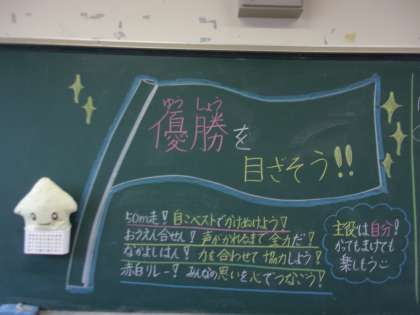 ゆう しょう
優勝を
目ざそう!!
50m走! 自己ベストでかけぬけよう!
おうえん合せん! 声がかれるまで全力だ!
なかよしはん! 力を合わせて協力しよう!
赤白リレー! みんなの思いを心でつなごう!
主役は自分!
かってもまけても
楽しもう